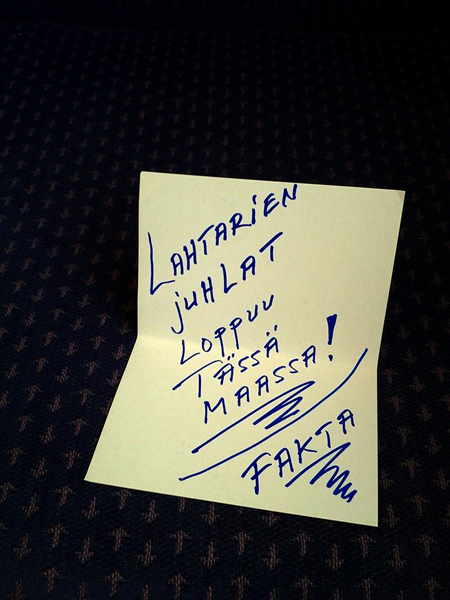 LAHTARiEN
juHLAT
LOPPUU
TÄSSÄ
MAASSA!
FAKTA